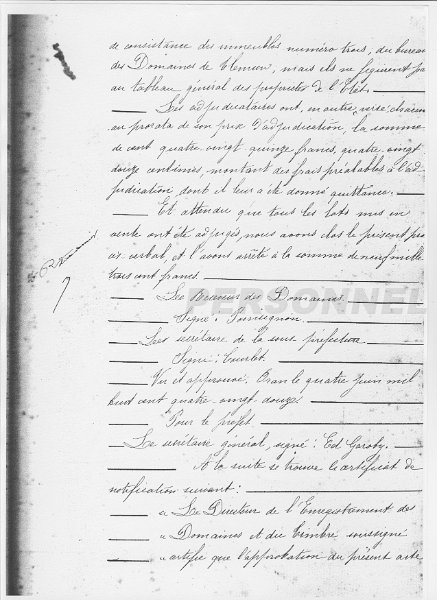 de consistance des immeubles numéro trois, du bureau
des Domaines de Tlemcen, mais ils ne figurent pas
au tableau général des propriétés de l'Etat.
Les adjudicataires ont, en outre, versé, chacun
au prorata de son prix d'adjudication, la somme
de cent quatre vingt quinze francs, quatre vingt
douze centimes montant des frais préalables à l'ad-
judication dont il leur a été donné quittance.
Et attendu que tous les lots mis en
vente ont été adjugés, nous avons clos le présent pro
cès verbal, et l'avons arrêté à la somme de neuf mille
trois cent francs.
Le Receveur des Domaines
Signé:
Le secrétaire de la sous préfecture
Signé:
Vu et approuvé. Oran le quatre juin mil
huit cent quatre vingt douze
Pour le préfet
Le secrétaire général, signé: Ed
A la suite se trouve le certificat de
notification suivant:
« Le Directeur de l'Enregistrement des
« Domaines et du Timbre soussigné
« certifie que l'approbation du présent acte
PERSONNEL